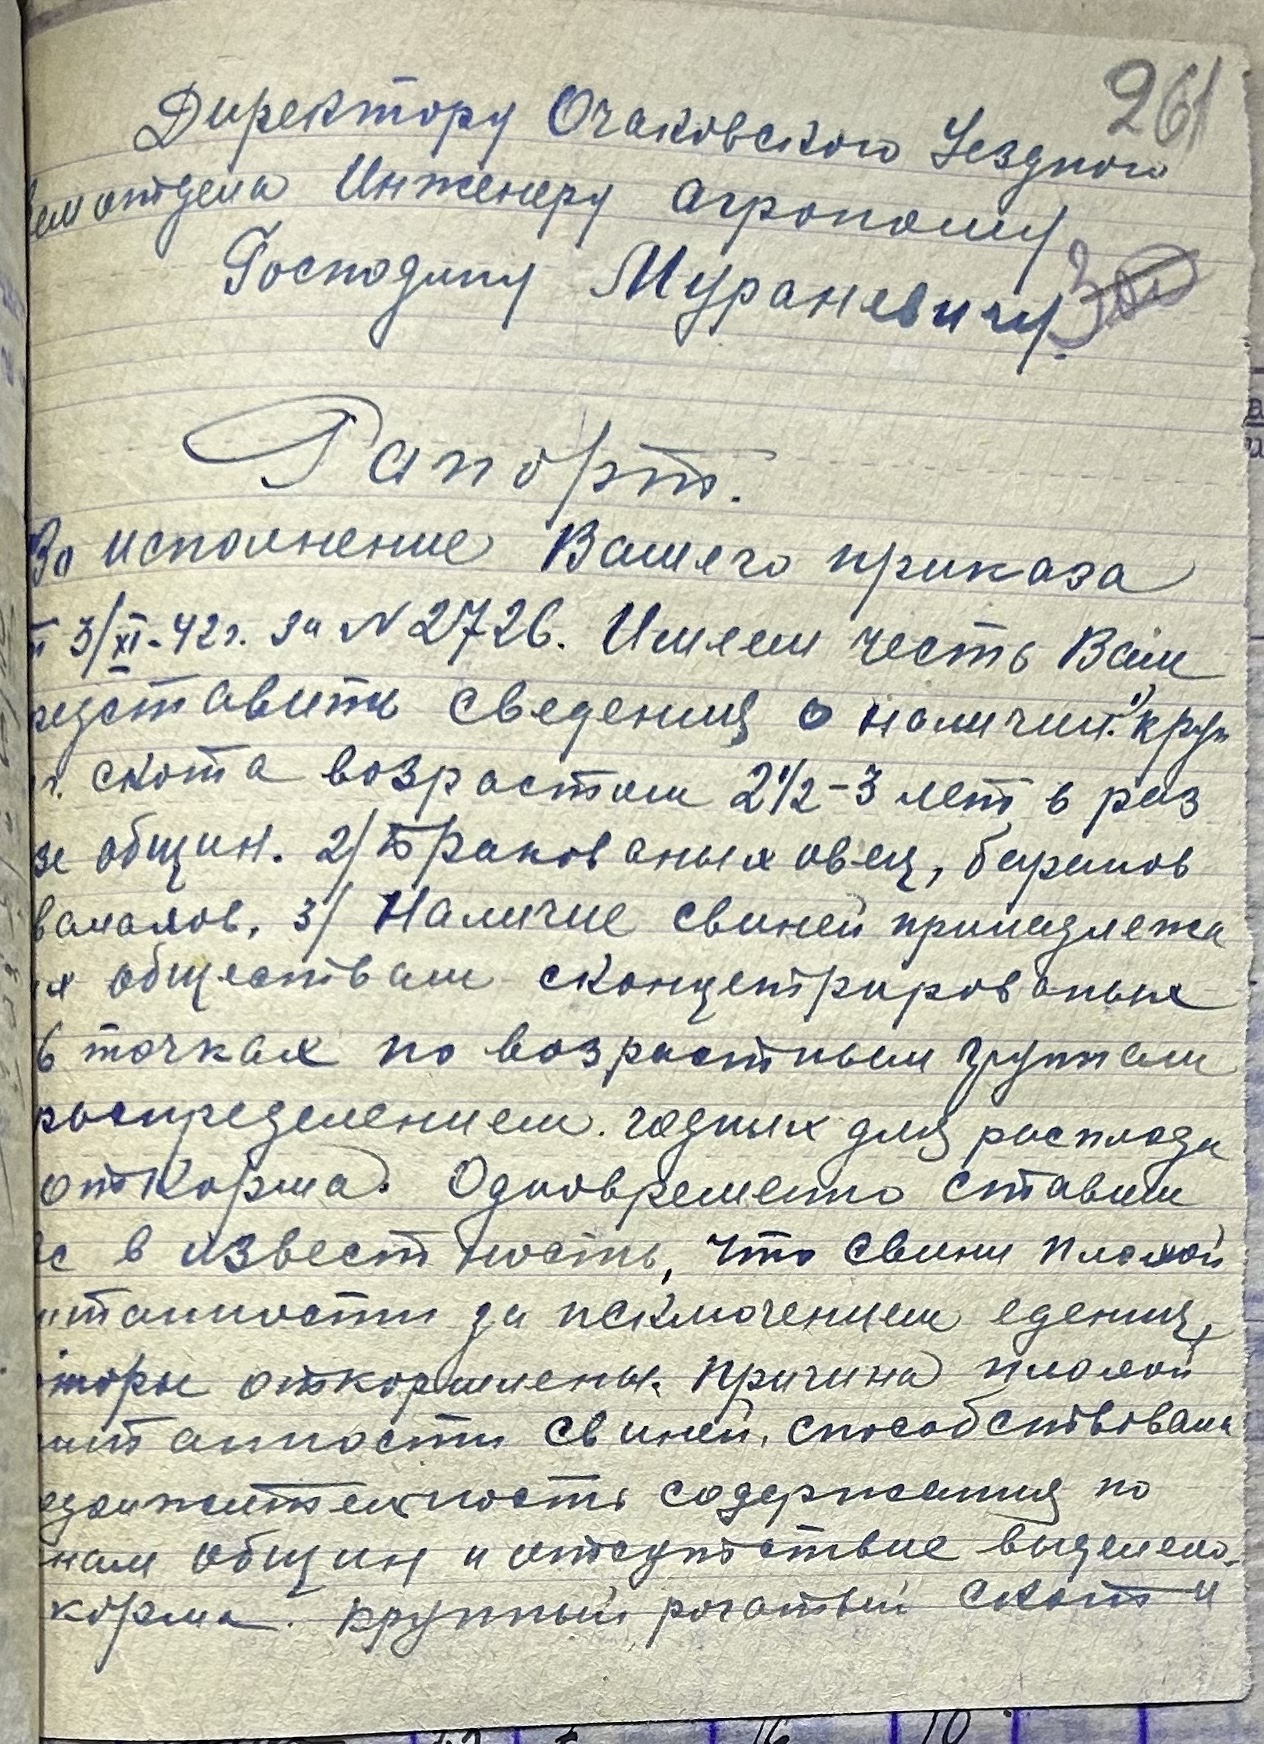 261
Директору Очаковского Уездного
зем отдела Инженеру агроному
Господину Мураневичу.
Рапорт.
Во исполнение Вашего приказа
т 3/XI-42 г. за № 2726. Имеем честь Вам
редставить сведения о наличии: 1) круп
г. скота возрастом 2 1/2-3 лет в раз
зе общин. 2/ Бракованых овец, баранов
валахов. 3/ Наличие свиней принадлежа
их обществам сконцентрированых
в точках по возрастным групам
распределением. годных для расплода
откорма. Одновременно ставим
ас в известность, что свини плохой
итанности за исключением едениц,
оторы откормлены. Причина плохой
итанности свиней, способствовала
содержания по
нам общин и отсутствие выделено
корма. Крупный рогатый скот и